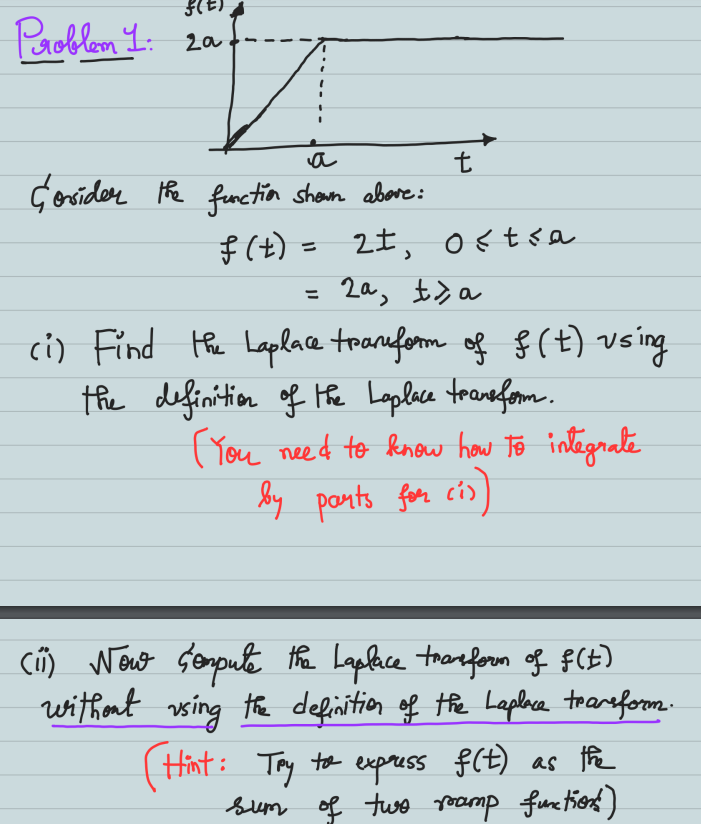 f(t)
Problem 1:
2a
a
t
Consider the function shown above:
f(t) = 2t, 0 ≤ t ≤ a
= 2a, t ≥ a
(i) Find the Laplace transform of f(t) using
the definition of the Laplace transform.
(You need to know how to integrate
by parts for (i))
(ii) Now compute the Laplace transform of f(t)
without using the definition of the Laplace transform.
(Hint: Try to express f(t) as the
sum of two ramp functions)